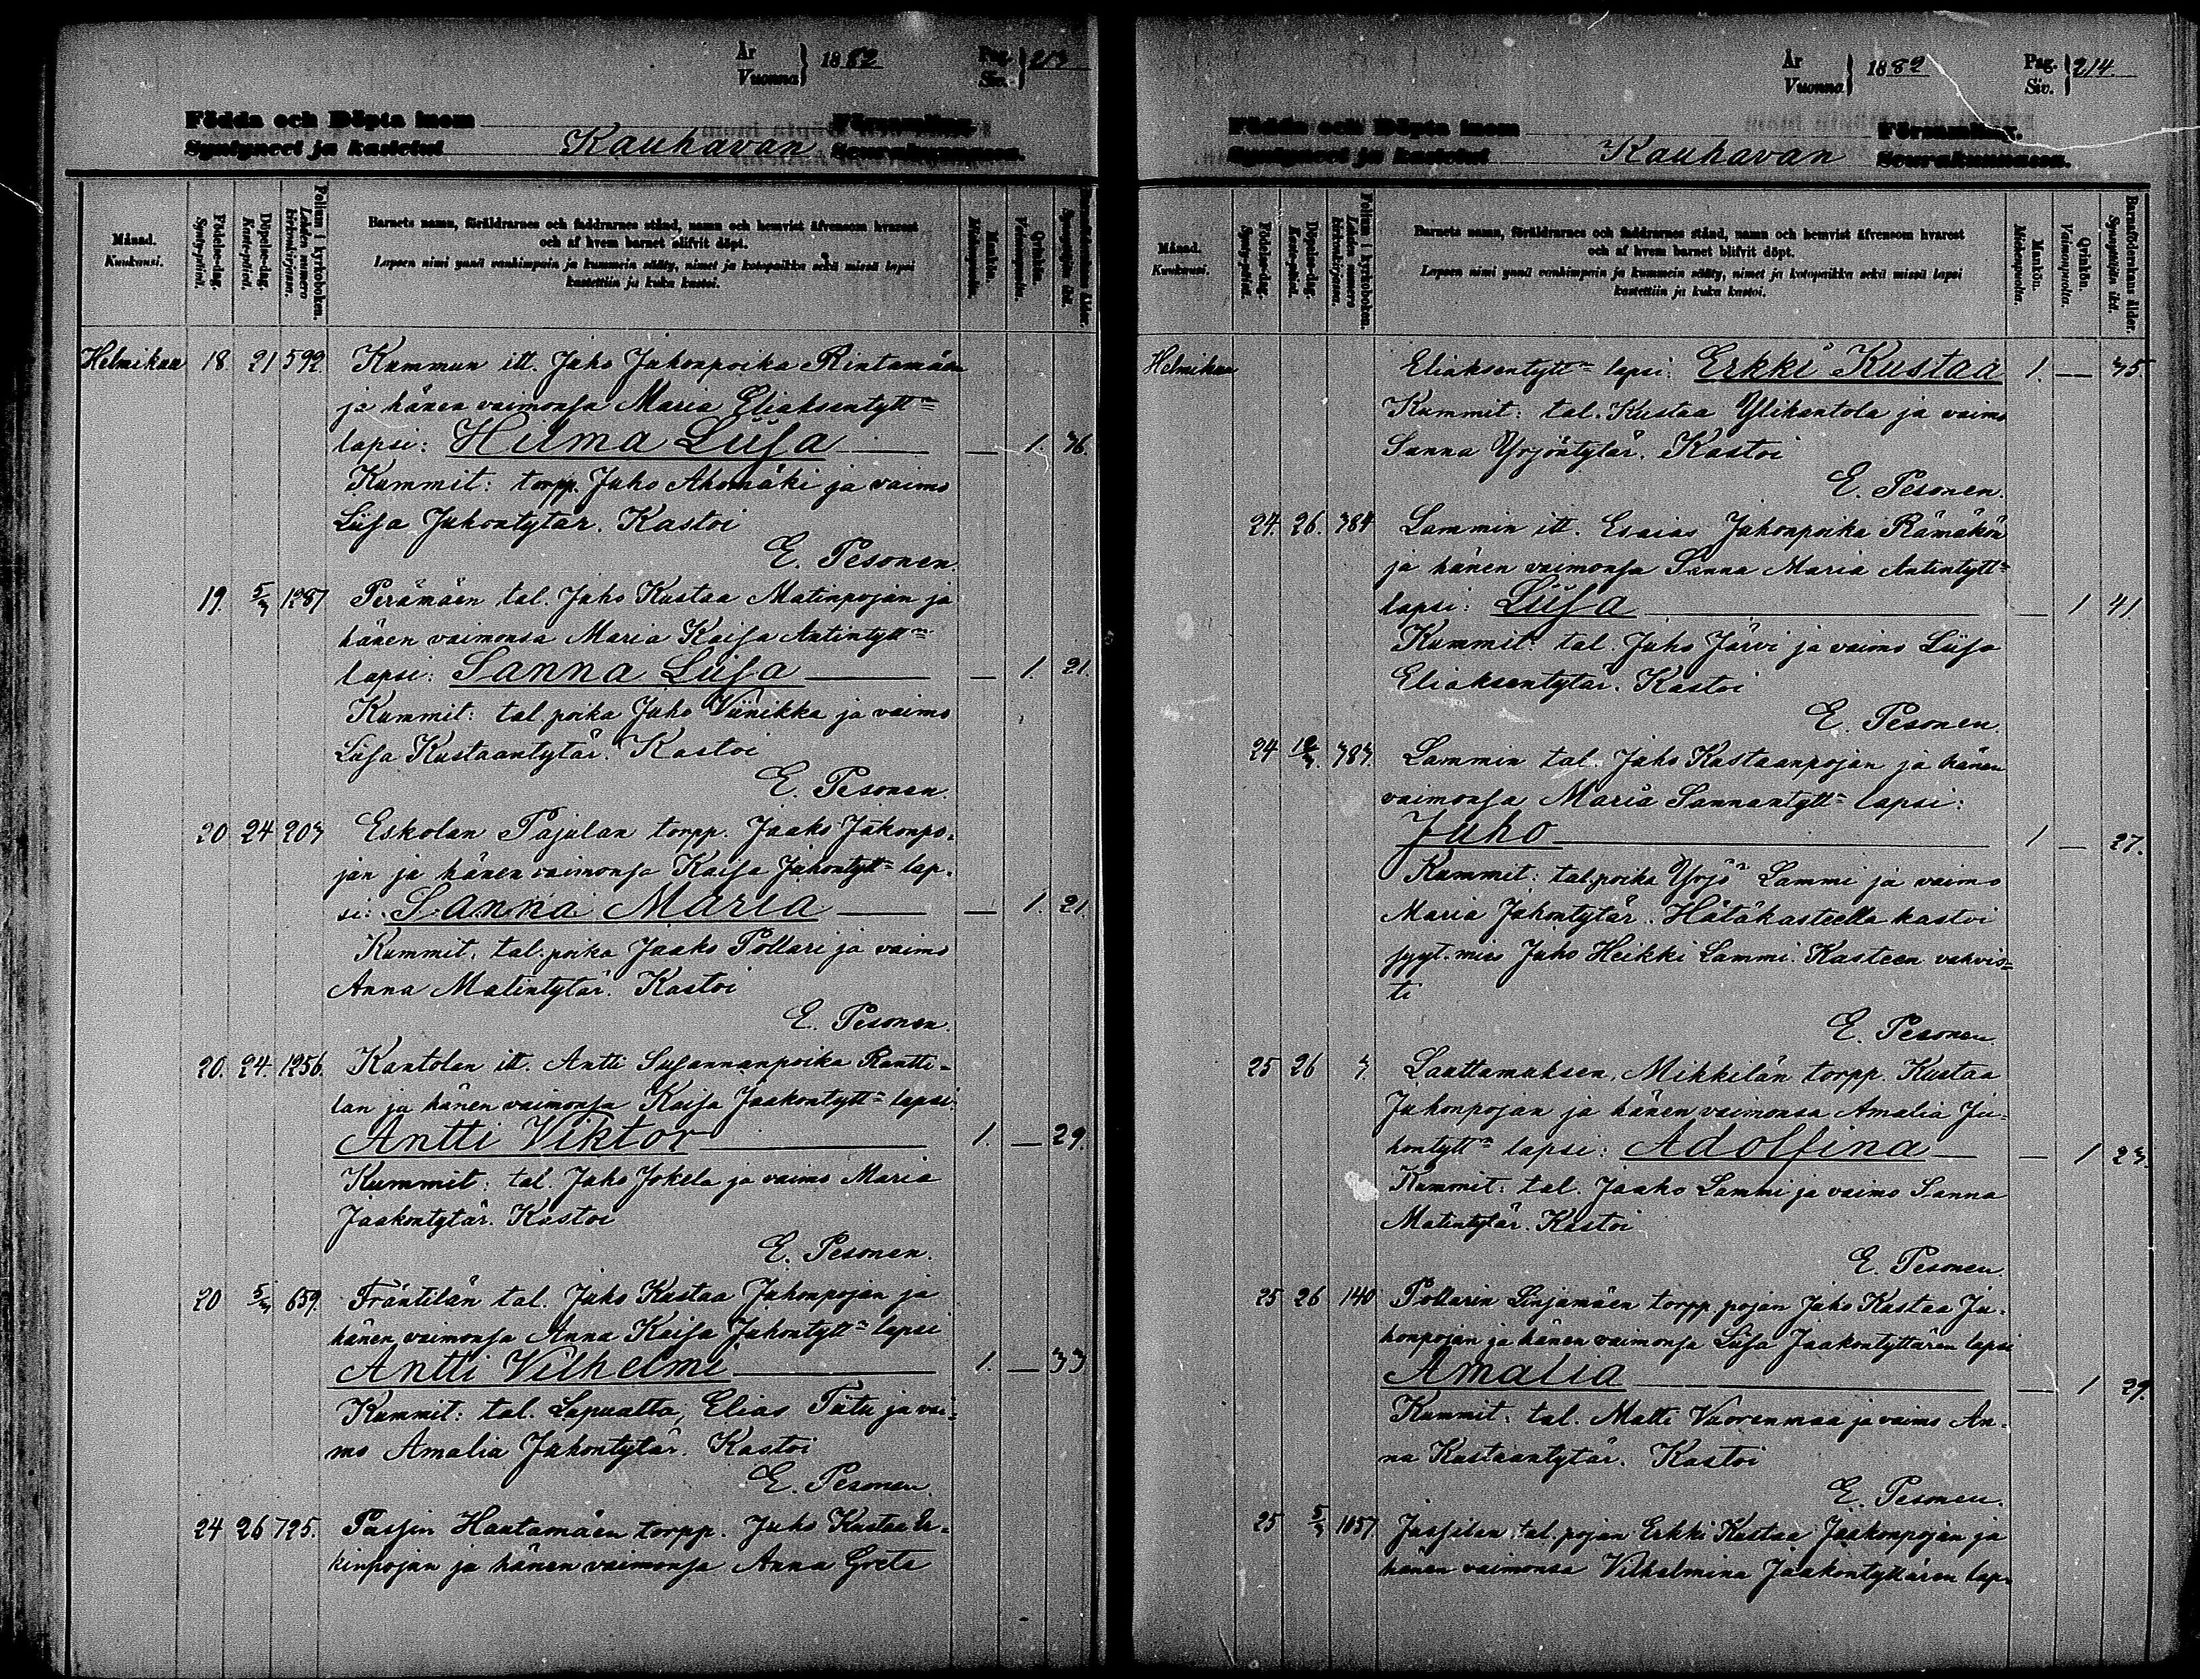 År
Vuonna } 1882 Pag. Siv. } 213
Födda och Döpta inom Församling.
Syntyneet ja kastetut Kauhavan Seurakunnassa.
Månad. Kuukausi.
Födelse-dag. Synty-päivä.
Döpelse-dag. Kaste-päivä.
Folium i kyrkoboken. Lehden numero kirkonkirjassa.
Barnets namn, föräldrarnes och faddrarnes stånd, namn och hemvist äfvensom hvarest
och af hvem barnet blifvit döpt.
Lapsen nimi ynnä vanhimpain ja kummein sääty, nimet ja kotopaikka sekä missä lapsi
kastettiin ja kuka kastoi.
Mankön. Miehenpuolia.
Qvinkön. Vaimonpuolia.
Barnaföderskans ålder. Synnyttäjän ikä.
Helmikuu 18. 21 592 Kummun itt. Juho Juhonpoika Rintamäen
ja hänen vaimonsa Maria Eliaksentytt=
lapsi: Hilma Liisa — 1. 36.
Kummit: torpp. Juho Ahomäki ja vaimo
Liisa Juhontytär. Kastoi
E. Pesonen.
19. 5/3 1287 Perämäen tal. Juho Kustaa Matinpojan ja
hänen vaimonsa Maria Kaisa Antintytt=
lapsi: Sanna Liisa — 1. 21.
Kummit: tal. poika Juho Viinikka ja vaimo
Liisa Kustaantytär. Kastoi
E. Pesonen.
20 24 203 Eskolan Pajulan torpp. Jaako Jakonpo=
jan ja hänen vaimonsa Kaisa Juhontytt= lap=
si: Sanna Maria — 1. 21.
Kummit: tal. poika Jaako Pollari ja vaimo
Anna Matintytär. Kastoi
E. Pesonen.
20. 24. 1256. Kantolan itt. Antti Susannanpoika Rantti=
lan ja hänen vaimonsa Kaisa Jaakontytt= lapsi:
Antti Viktor 1. — 29.
Kummit: tal. Juho Jokela ja vaimo Maria
Jaakontytär. Kastoi
E. Pesonen.
20 5/3 659. Fräntilän tal. Juho Kustaa Juhonpojan ja
hänen vaimonsa Anna Kaisa Juhontytt= lapsi
Antti Vilhelmi 1. — 33
Kummit: tal. Lapualta, Elias Tiitu ja vai=
mo Amalia Juhontytär. Kastoi
E. Pesonen.
24 26 725. Passin Hautamäen torpp. Juho Kustaa Er=
kinpojan ja hänen vaimonsa Anna Greta
År
Vuonna } 1882 Pag. Siv. } 214.
Födda och Döpta inom Församling.
Syntyneet ja kastetut Kauhavan Seurakunnassa.
Månad. Kuukausi.
Födelse-dag. Synty-päivä.
Döpelse-dag. Kaste-päivä.
Folium i kyrkoboken. Lehden numero kirkonkirjassa.
Barnets namn, föräldrarnes och faddrarnes stånd, namn och hemvist äfvensom hvarest
och af hvem barnet blifvit döpt.
Lapsen nimi ynnä vanhimpain ja kummein sääty, nimet ja kotopaikka sekä missä lapsi
kastettiin ja kuka kastoi.
Mankön. Miehenpuolia.
Qvinkön. Vaimonpuolia.
Barnaföderskans ålder. Synnyttäjän ikä.
Helmikuu Eliaksentytt= lapsi: Erkki Kustaa 1. — 35.
Kummit: tal. Kustaa Ylikantola ja vaimo
Sanna Yrjöntytär. Kastoi
E. Pesonen.
24. 26. 384 Lammin itt. Esaias Juhonpoika Rämäkön
ja hänen vaimonsa Sanna Maria Antintytt=
lapsi: Liisa — 1 41.
Kummit: tal. Juho Järvi ja vaimo Liisa
Eliaksentytär. Kastoi
E. Pesonen.
24 12/3. 383. Lammin tal. Juho Kustaanpojan ja hänen
vaimonsa Maria Sannantytt= lapsi:
Juho 1 — 27.
Kummit: tal. poika Yrjö Lammi ja vaimo
Maria Juhontytär. Hätäkasteella kastoi
syyt. mies Juho Heikki Lammi. Kasteen vahvis=
ti
E. Pesonen.
25 26 3. Lauttamuksen, Mikkilän torpp. Kustaa
Juhonpojan ja hänen vaimonsa Amalia Ju=
hontytt= lapsi: Adolfina — 1 23.
Kummit: tal. Jaako Lammi ja vaimo Sanna
Matintytär. Kastoi
E. Pesonen.
25 26 140 Pollarin Linjamäen torpp. pojan Juho Kustaa Ju=
honpojan ja hänen vaimonsa Liisa Jaakontyttären lapsi
Amalia — 1 29.
Kummit: tal. Matti Vuorenmaa ja vaimo An=
na Kustaantytär. Kastoi
E. Pesonen.
25 5/3 1057. Jassilan tal. pojan Erkki Kustaa Jaakonpojan ja
hänen vaimonsa Vilhelmina Jaakontyttären lap=